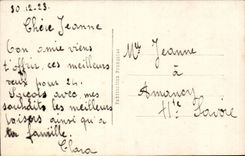 30.12.23.
Chère Jeanne
Ton amie viens
t'offrir ces meilleurs
veux pour 24.
Reçois avec mes
souhaits les meilleurs
baisers ainsi qu'a
ta famille.
Clara
Mlle Jeanne
à
Amancy
Hte Savoie